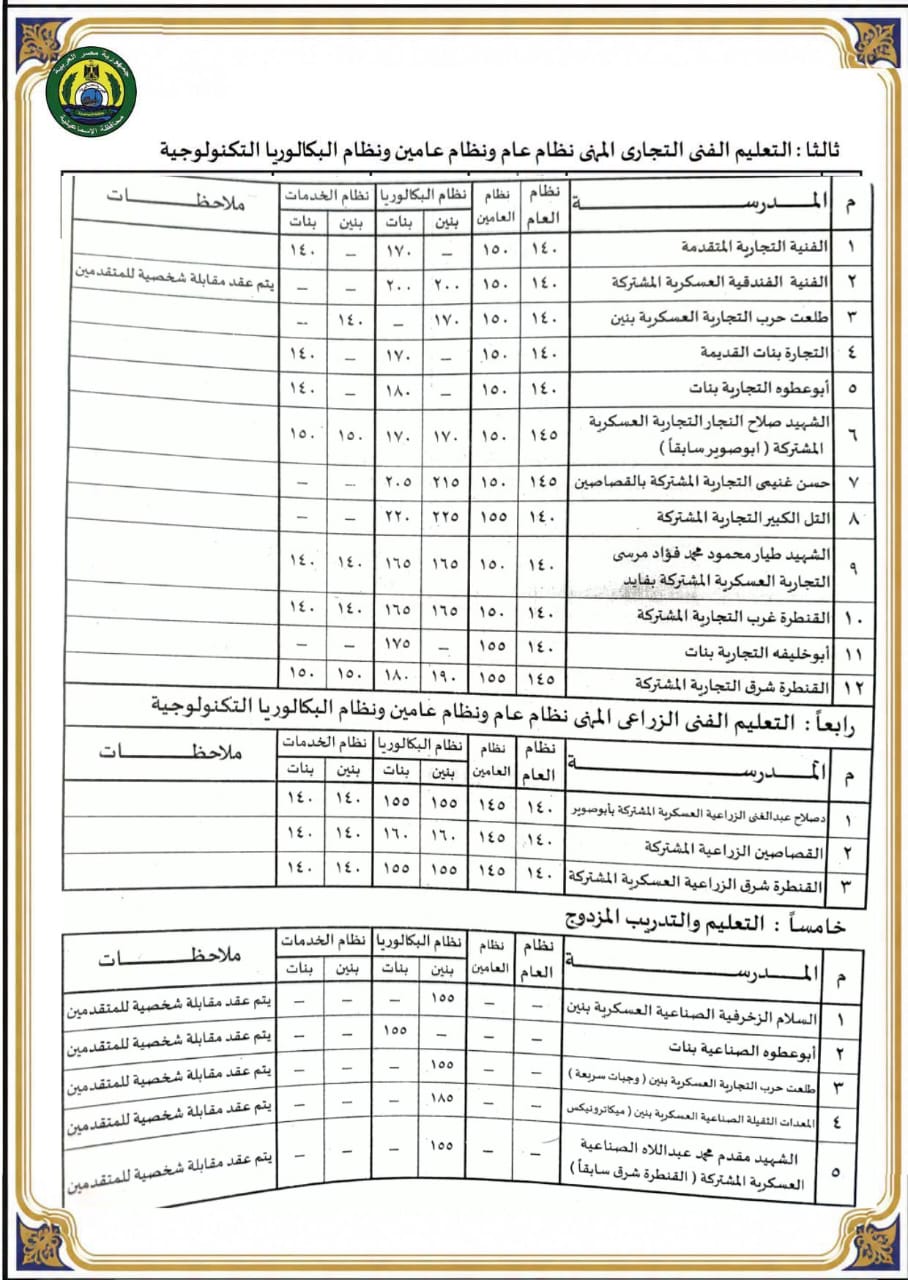 جمهورية مصر العربية
محافظة الإسماعيلية
ثالثا : التعليم الفنى التجارى المهنى نظام عام ونظام عامين ونظام البكالوريا التكنولوجية
م المدرسة نظام العام نظام العامين نظام البكالوريا نظام الخدمات ملاحظات
بنين بنات بنين بنات
١ الفنية التجارية المتقدمة ١٤٠ ١٥٠ – ١٧٠ – ١٤٠
٢ الفنية الفندقية العسكرية المشتركة ١٤٠ ١٥٠ ٢٠٠ ٢٠٠ – – يتم عقد مقابلة شخصية للمتقدمين
٣ طلعت حرب التجارية العسكرية بنين ١٤٠ ١٥٠ ١٧٠ – ١٤٠ –
٤ التجارة بنات القديمة ١٤٠ ١٥٠ – ١٧٠ – ١٤٠
٥ أبوعطوه التجارية بنات ١٤٠ ١٥٠ – ١٨٠ – ١٤٠
٦ الشهيد صلاح النجار التجارية العسكرية ١٤٥ ١٥٠ ١٧٠ ١٧٠ ١٥٠ ١٥٠
المشتركة ( ابوصوير سابقاً )
٧ حسن غنيمى التجارية المشتركة بالقصاصين ١٤٥ ١٥٠ ٢١٥ ٢٠٥ – –
٨ التل الكبير التجارية المشتركة ١٤٠ ١٥٥ ٢٢٥ ٢٢٠ – –
٩ الشهيد طيار محمود محمد فؤاد مرسى ١٤٠ ١٥٠ ١٦٥ ١٦٥ ١٤٠ ١٤٠
التجارية العسكرية المشتركة بفايد
١٠ القنطرة غرب التجارية المشتركة ١٤٠ ١٥٠ ١٦٥ ١٦٥ ١٤٠ ١٤٠
١١ أبوخليفه التجارية بنات ١٤٠ ١٥٥ – ١٧٥ – –
١٢ القنطرة شرق التجارية المشتركة ١٤٥ ١٥٥ ١٩٠ ١٨٠ ١٥٠ ١٥٠
رابعاً : التعليم الفنى الزراعى المهنى نظام عام ونظام عامين ونظام البكالوريا التكنولوجية
م المدرسة نظام العام نظام العامين نظام البكالوريا نظام الخدمات ملاحظات
بنين بنات بنين بنات
١ دصلاح عبدالغنى الزراعية العسكرية المشتركة بأبوصوير ١٤٠ ١٤٥ ١٥٥ ١٥٥ ١٤٠ ١٤٠
٢ القصاصين الزراعية المشتركة ١٤٠ ١٤٥ ١٦٠ ١٦٠ ١٤٠ ١٤٠
٣ القنطرة شرق الزراعية العسكرية المشتركة ١٤٠ ١٤٥ ١٥٥ ١٥٥ ١٤٠ ١٤٠
خامساً : التعليم والتدريب المزدوج
م المدرسة نظام العام نظام العامين نظام البكالوريا نظام الخدمات ملاحظات
بنين بنات بنين بنات
١ السلام الزخرفية الصناعية العسكرية بنين – – ١٥٥ – – – يتم عقد مقابلة شخصية للمتقدمين
٢ أبوعطوه الصناعية بنات – – – ١٥٥ – – يتم عقد مقابلة شخصية للمتقدمين
٣ طلعت حرب التجارية العسكرية بنين ( وجبات سريعة ) – – ١٥٥ – – – يتم عقد مقابلة شخصية للمتقدمين
٤ المعدات الثقيلة الصناعية العسكرية بنين ( ميكاترونيكس – – ١٨٥ – – – يتم عقد مقابلة شخصية للمتقدمين
٥ الشهيد مقدم محمد عبداللاه الصناعية – – ١٥٥ – – – يتم عقد مقابلة شخصية للمتقدمين
العسكرية المشتركة ( القنطرة شرق سابقاً )